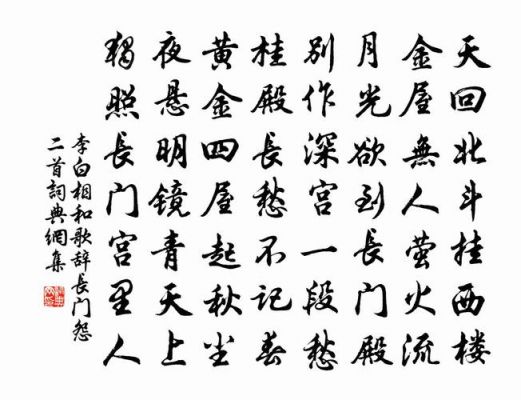 天回北斗挂西楼
金屋無人萤火流
月光欲到長门殿
别作深宫一段愁
桂殿長愁不记春
黄金四屋起秋尘
夜悬明镜青天上
独照長门宫里人
李白相和歌辞長门怨
二首詞典網集